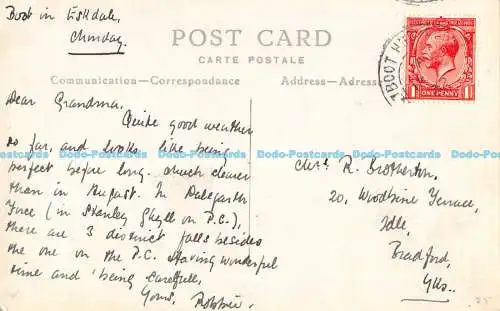 Boot in Eskdale,
Monday.
POST CARD
CARTE POSTALE
Communication—Correspondance
Address—Adresse
BOOT
POSTAGE REVENUE
ONE PENNY
Dear Grandma,
Quite good weather
so far, and looks like being
perfect before long. Much clearer
than in August. In Dalegarth
Force (in Stanley Ghyll on P.C.),
there are 3 distinct falls besides
the one on the P.C. Having wonderful
time and being careful,
Yours, Robbie.
Mrs. R. Brotherton,
20, Woodbine Terrace,
Idle,
Bradford,
Yks.
Dodo-Postcards Dodo-Postcards Dodo-Postcards Dodo-Postcards Dodo-Postcards Dodo-Postcards